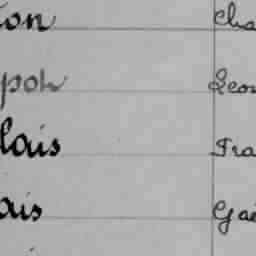 ton Cha
poh Leon
lais Fra
ais Gaë